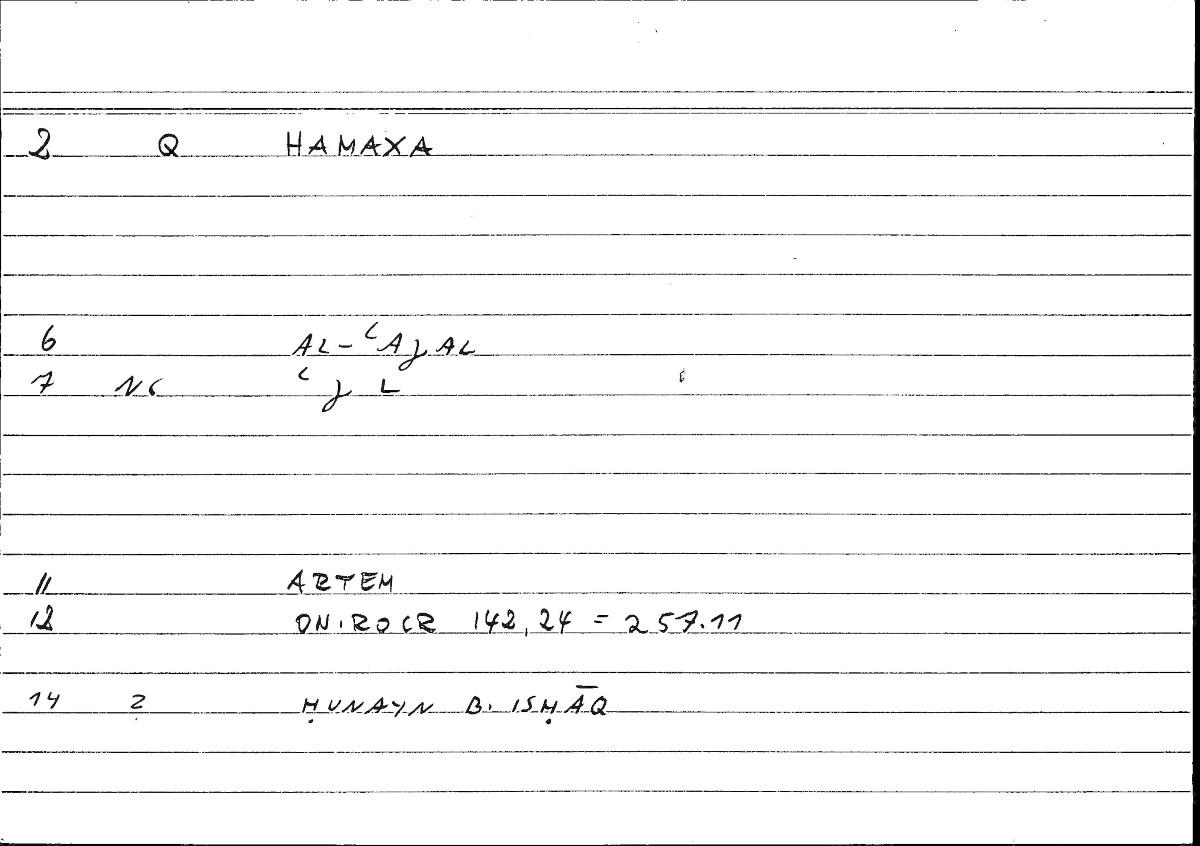 2 Q HAMAXA
6 AL-ʿAJAL
7 NC ʿJL
11 ARTEM
12 ONIROCR 142,24 = 257.11
14 2 ḤUNAYN B. ISḤĀQ